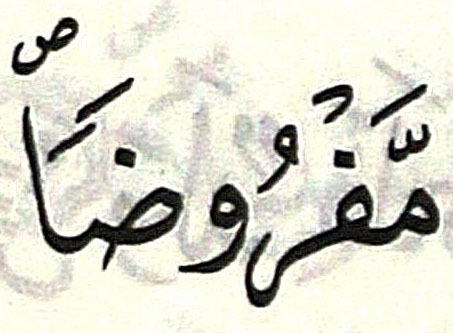 مَّفْرُوضًا ۖ ص